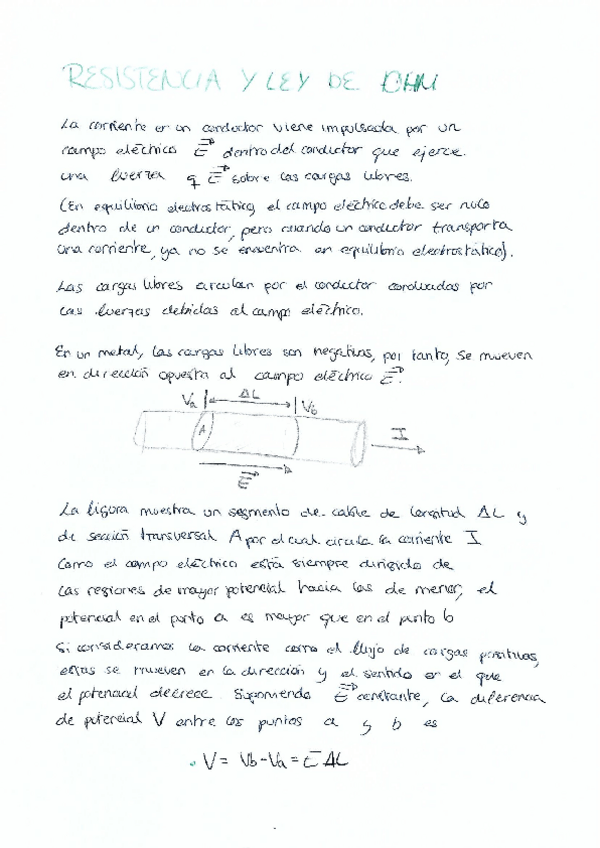 RESISTENCIA Y LEY DE OHM
La corriente en un conductor viene impulsada por un
campo eléctrico E dentro del conductor que ejerce
una fuerza q E sobre las cargas libres.
(En equilibrio electrostático, el campo eléctrico debe ser nulo
dentro de un conductor, pero cuando un conductor transporta
una corriente, ya no se encuentra en equilibrio electrostático).
Las cargas libres circulan por el conductor conducidas por
las fuerzas debidas al campo eléctrico.
En un metal, las cargas libres son negativas, por tanto, se mueven
en dirección opuesta al campo eléctrico E.
Va ΔL Vb
A
I
E
La figura muestra un segmento de cable de longitud ΔL y
de sección transversal A por el cual circula la corriente I
Como el campo eléctrico está siempre dirigido de
las regiones de mayor potencial hacia las de menor, el
potencial en el punto a es mayor que en el punto b
Si consideramos la corriente como el flujo de cargas positivas,
estas se mueven en la dirección y el sentido en el que
el potencial decrece. Suponiendo E constante, la diferencia
de potencial V entre los puntos a y b es
V = Vb - Va = E ΔL